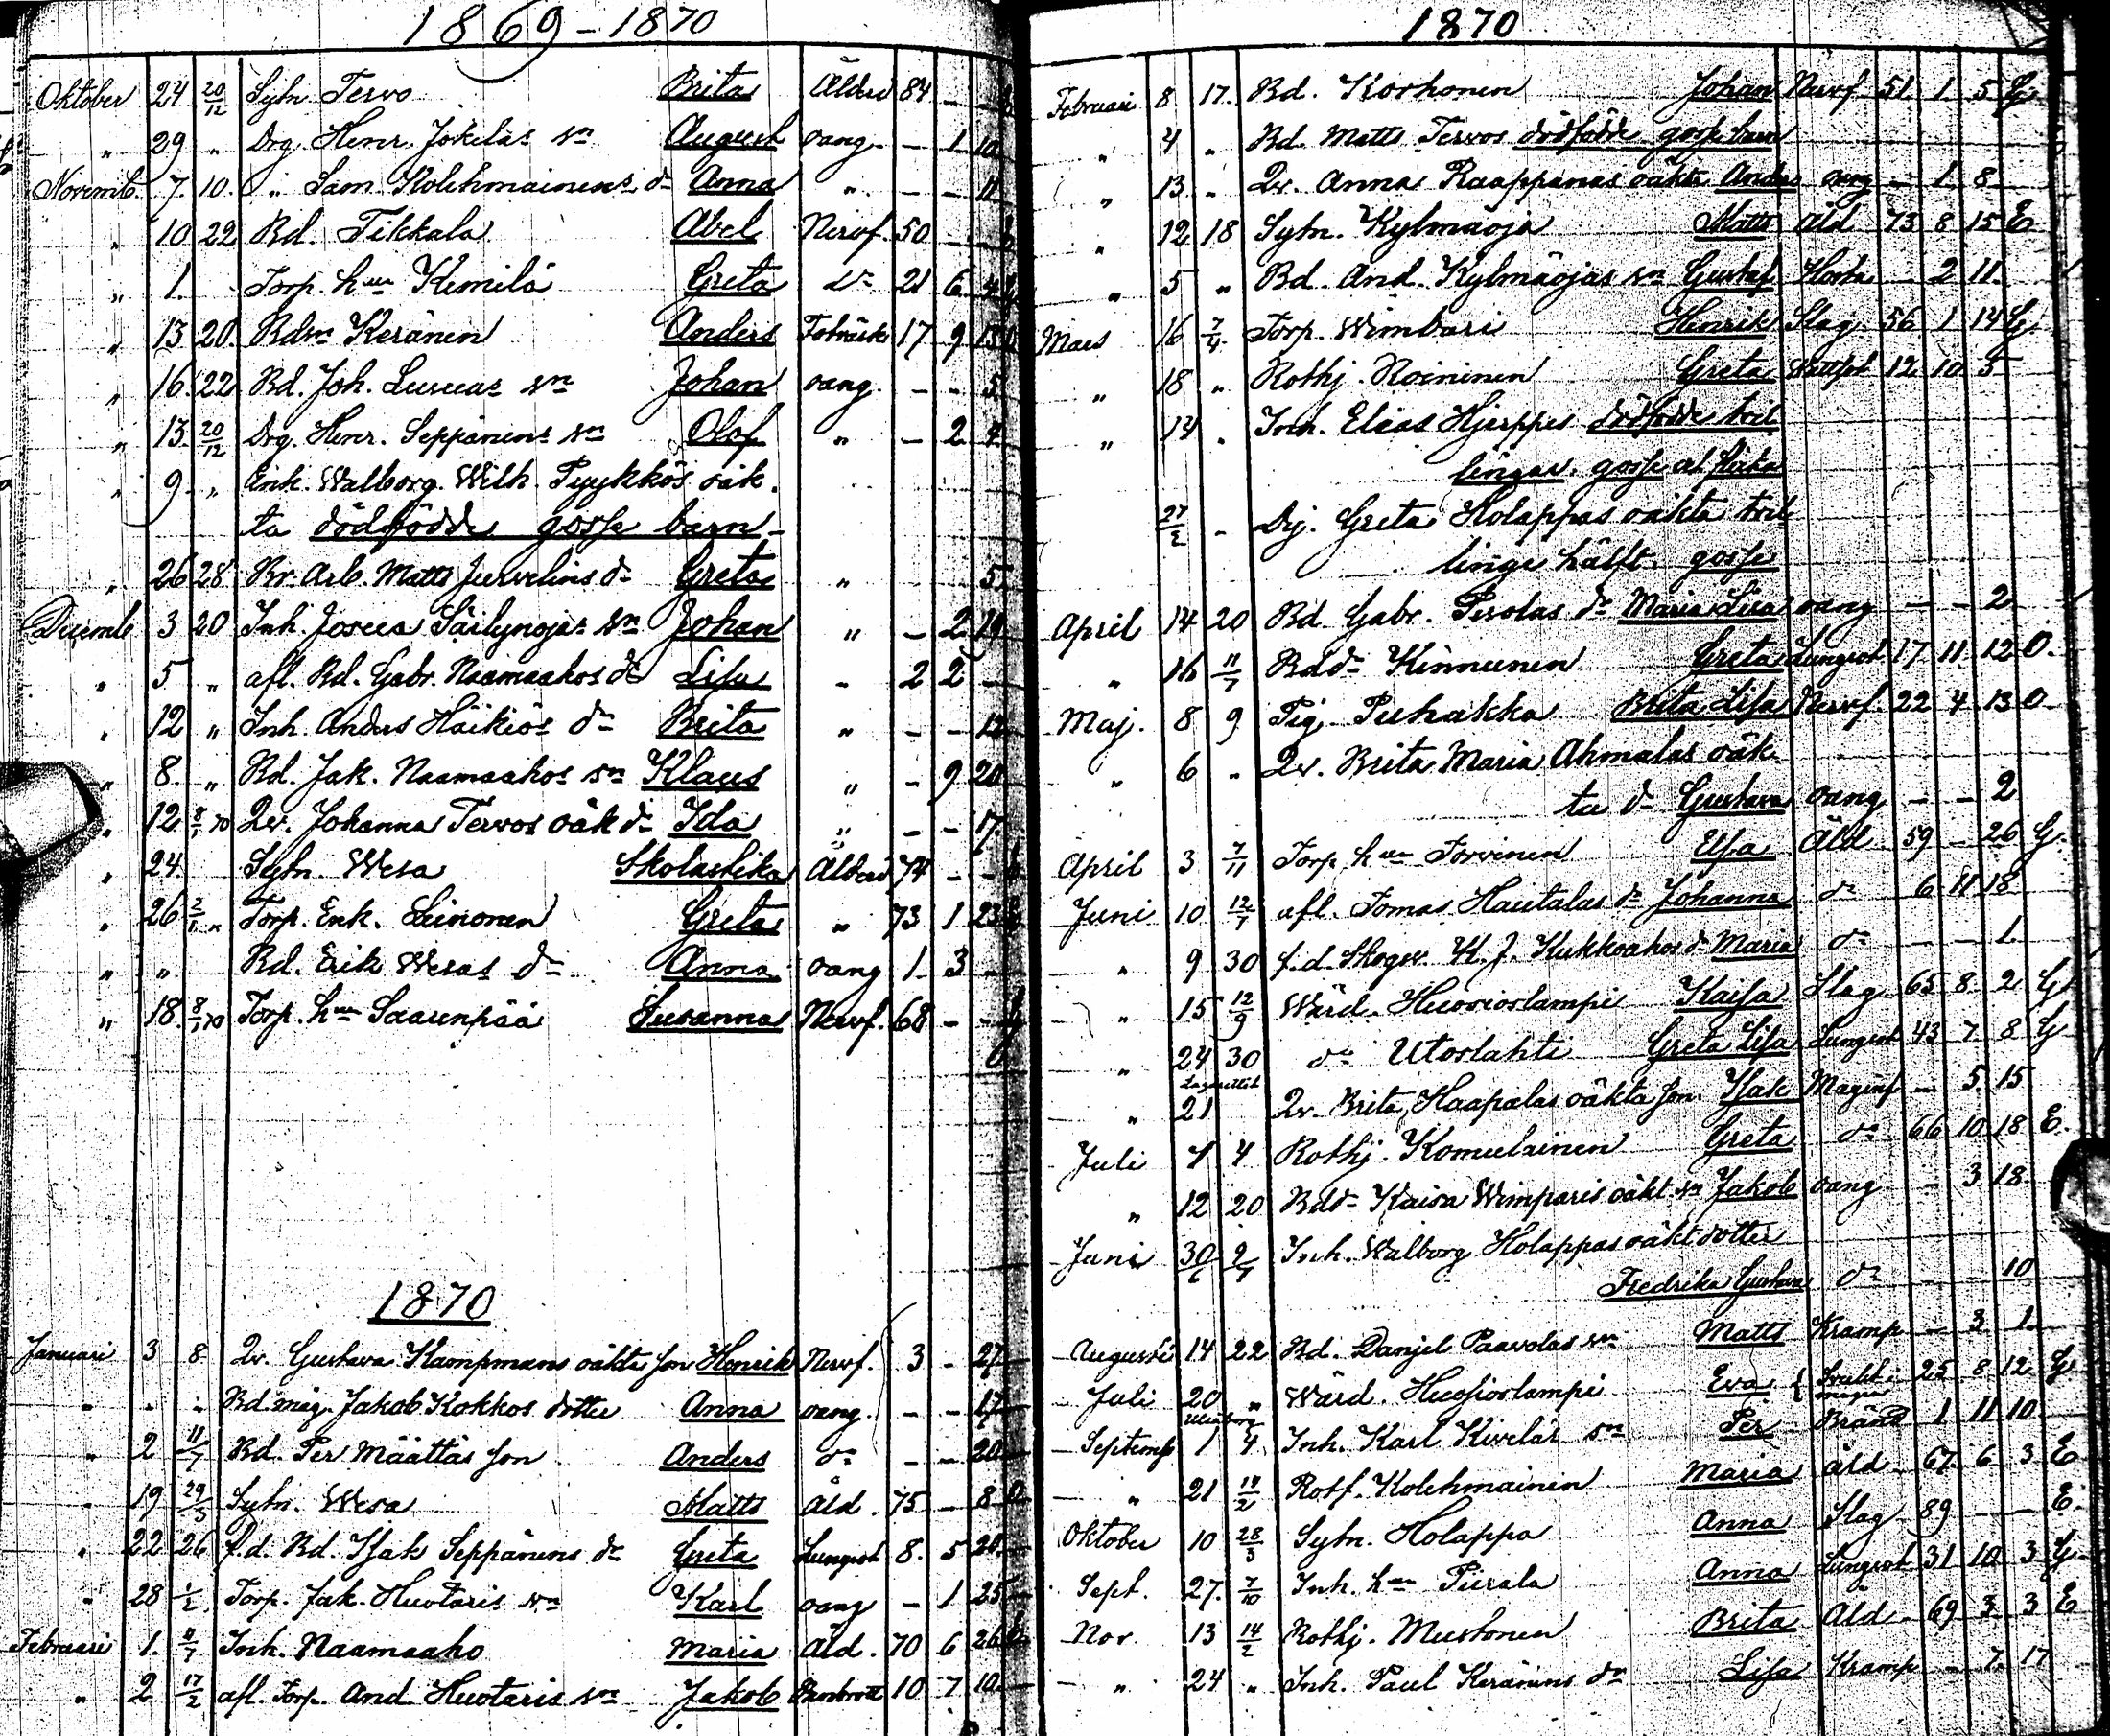 1869-1870
Oktober 24 20/12 Sytn. Tervo Brita Ålderd 84 - -
" 29 " Drg. Henr. Jokelas sn August oang. - 1 10
Novemb. 7 10. " Sam. Kolehmainens dr Anna " - - 11
" 10 22 Bd. Tikkala Abel Nervf. 50 - -
" 1. Torp. hu Kemilä Greta dr 21 6 4
" 13 20 Bdsn Keränen Anders 17 9 13
" 16 22 Bd. Joh. sn Johan oang. - - 5
" 13 20/12 Drg. Henr. Seppänens sn Olof " - 2 7
" 9 " Enk. Walborg Wilh. Pyykkös oäk.
ta dödfödde gosse barn -
" 26 28 Kr. Arb. Matts Jurvelins dr Greta " 5
Decemb 3 20 Inh. Josua Säilynojas sn Johan " - 2 19
" 5 " afl. Bd. Gabr. Naamaahos dr Lisa " 2 2 -
" 12 " Inh. Anders Häikiös dr Brita " - - 12
" 8 " Bd. Jak. Naamaahos sn Klaus " - 9 20
" 12 8/1 70 Qv. Johanna Tervos oäk dr Ida " - - 17
" 24 Sytn. Wesa Skolastika Ålderd 74 - -
" 26 2/1 " Torp. Enk. Leinonen Greta " 73 1 23
" " Bd. Erik Wesas dr Anna oang 1 3 -
" 18 8/1 70 Torp. hu Saarenpää Susanna Nervf. 68 - -
1870
Januari 3 8 Qv. Gustava Kampmans oäkta son Henrik Nervf. 3 - 27
" " " Bd. måg. Jakob Kokkos dotter Anna oang. - - 17
" 2 11/7 Bd. Per Määttäs son Anders dr - - 20
" 19 29/3 Sytn. Wesa Matts Åld. 75 - 8
" 22 26 f.d. Bd. Isak Seppänens dr Greta Lungsot 8 5 20
" 28 1/2 Torp. Jak. Huotaris sn Karl oang - 1 25
Februari 1. 11/7 Inh. Naamaaho Maria Åld. 70 6 26
" 2 17/2 afl. Torp. And. Huotaris sn Jakob 10 7 10
1870
Februari 8 17. Bd. Korhonen Johan Nervf. 51 1 5 G.
" 4 " Bd. Matts Tervos dödfödde gosse barn
" 13 " Qv. Anna Raappanas oäkta Anders oang - 1 8
" 12 18 Sytn. Kylmäoja Matts Åld 73 8 15 E
" 5 " Bd. And. Kylmäojas sn Gustaf Hosta - 2 11
Mars 16 7/4 Torp. Wimbari Henrik Slag 56 1 14 G.
" 18 " Rothj. Roininen Greta 12 10 5
" 14 " Inh. Elias Hjerppes dödfödde tvil
lingar. gosse och flicka
27/2 " Drj. Greta Holappas oäkta tvil
linge hälft. gosse
April 14 20 Bd. Gabr. Perolas dr Maria Lisa oang - - 2
" 16 11/7 Bddr Kinnunen Greta Lungsot 17 11 12 O.
Maj. 8 9 Pig. Puhakka Brita Lisa Nervf. 22 4 13 O
" 6 " Qv. Brita Maria Ahmalas oäk
ta dr Gustava oang - - 2
April 3 7/11 Torp. hu Torvinen Elsa Åld 59 - 26 G.
Juni 10 12/7 afl. Tomas Hautalas dr Johanna dr 6 11 18
" 9 30 f.d. Skogsv. K. J. Kukkoahos dr Maria dr - - 1.
" 15 12/9 Wärd. Huosioslampi Kaisa Slag 65 8 2 G
" 24 30 dr Utoslahti Greta Lisa Lungsot 43 7 8 G
" 21 Qv. Brita Haapalas oäkta son. Isak Maginf - 5 15
Juli 1 4 Rothj. Komulainen Greta dr 66 10 18 E.
" 12 20 Bddr Kaisa Wimparis oäkt sn Jakob oang - 3 18
Juni 30/6 2/7 Inh. Walborg Holappas oäkt dotter
Fredrika Gustava dr - - 10
Augusti 14 22 Bd. Danjel Paavolas sn Matts Kramp - 3 1
Juli 20 " Wärd. Huosioslampi Eva 25 8 12 G
Uleåborg
Septemb 1 4 Inh. Karl Kivelas sn Per Bränd 1 11 10
" 21 14/2 Rotf. Kolehmainen Maria åld 67 6 3 E
Oktober 10 28/3 Sytn. Holappa Anna Slag 89 - - E
Sept. 27. 7/10 Inh. hu Piirala Anna Lungsot 31 10 3 G
Nov. 13 14/2 Rothj. Mustonen Brita Åld 69 3 3 E
" 24 " Inh. Paul Keränens dr Lisa Kramp - 7 17